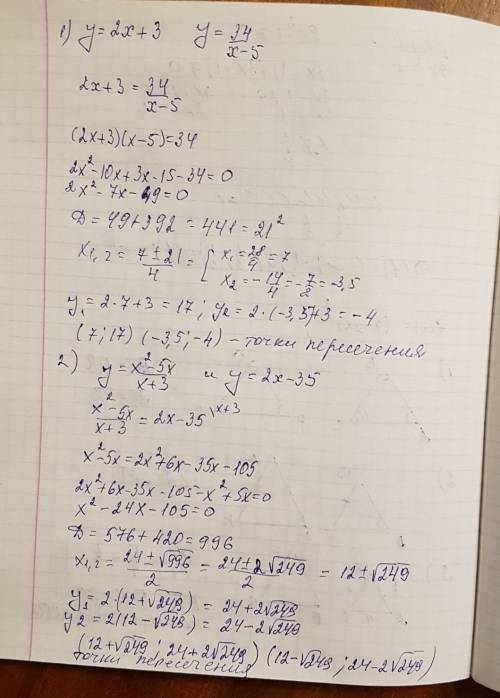 1) y=2x+3 y=34/(x-5)
2x+3=34/(x-5)
(2x+3)(x-5)=34
2x²-10x+3x-15-34=0
2x²-7x-49=0
D=49+392=441=21²
x1,2=(7±21)/4={x1=28/4=7
x2=-14/4=-7/2=-3,5
y1=2·7+3=17; y2=2·(-3,5)+3=-4
(7;17) (-3,5;-4) - точки пересечения
2) y=(x²-5x)/(x+3) и y=2x-35
(x²-5x)/(x+3)=2x-35 \x+3
x²-5x=2x²+6x-35x-105
2x²+6x-35x-105-x²+5x=0
x²-24x-105=0
D=576+420=996
x1,2=(24±√996)/2=(24±2√249)/2=12±√249
y1=2·(12+√249)=24+2√249
y2=2(12-√249)=24-2√249
(12+√249; 24+2√249) (12-√249; 24-2√249)
точки пересечения